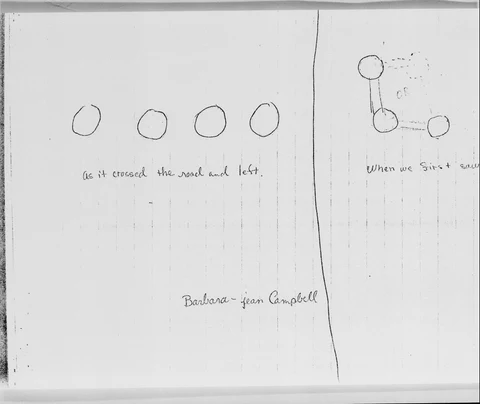 OR
as it crossed the road and left.
When we first saw
Barbara-jean Campbell